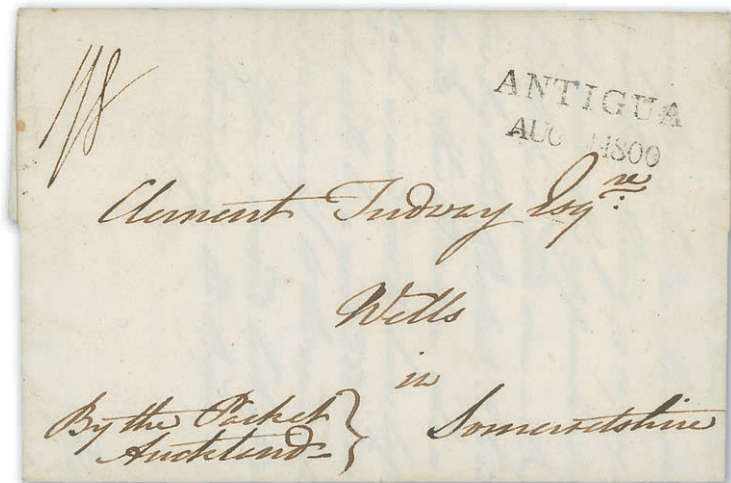 1/8
ANTIGUA
AUG 1800
Clement Tudway Esqre:
Wells
in
Somersetshire
By the Packet
Auckland